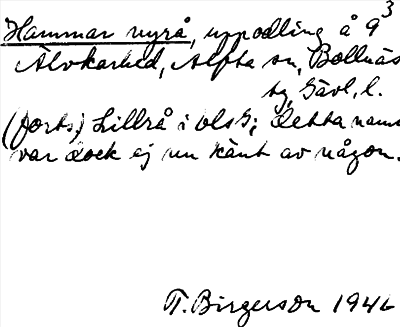 Hammar nyrå, uppodling å 9³
Älvkarhed, Alfta sn, Bollnäs
tg, Gävl. l.
(forts) Lillrå i OlsG; detta namn
var dock ej nu känt av någon.
T. Birgerson 1946